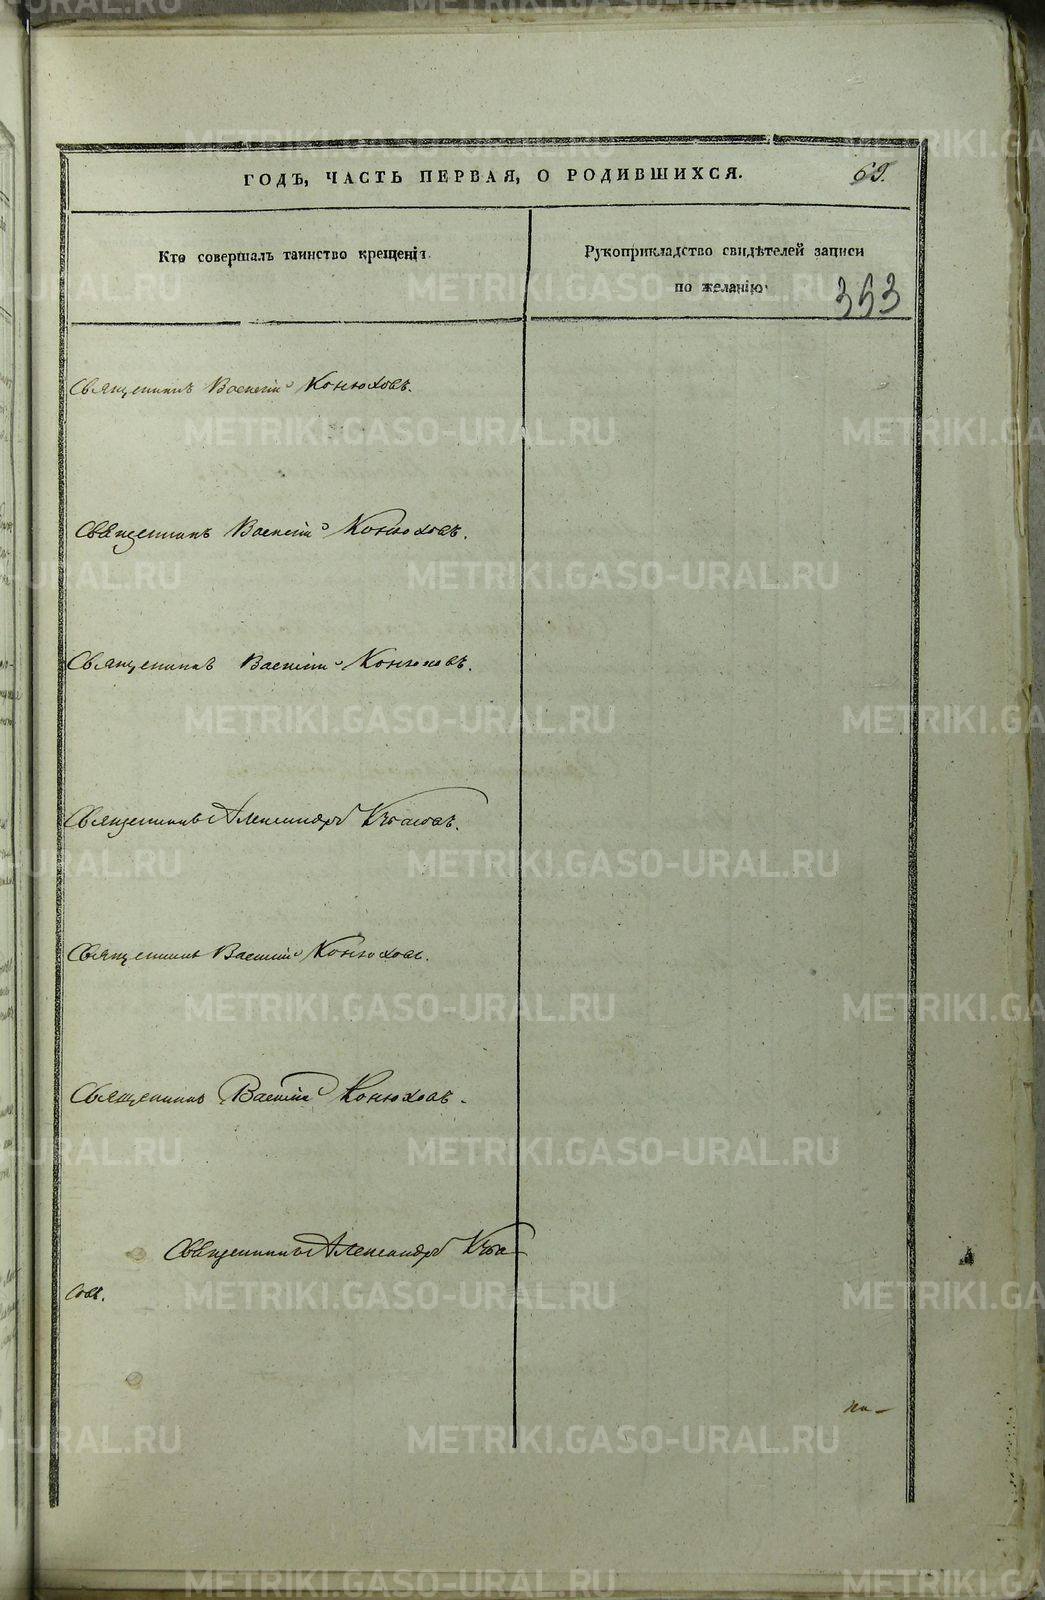 ГОДЪ, ЧАСТЬ ПЕРВАЯ, О РОДИВШИХСЯ. 69.
Кто совершалъ таинство крещенія.
Рукоприкладство свидѣтелей записи
по желанію
353
Священникъ Василій Конюховъ.
Священникъ Василій Конюховъ.
Священникъ Василій Конюховъ.
Священникъ Александръ
Священникъ Василій Конюховъ.
Священникъ Василій Конюховъ.
Священникъ Александръ
совъ.
METRIKI.GASO-URAL.RU